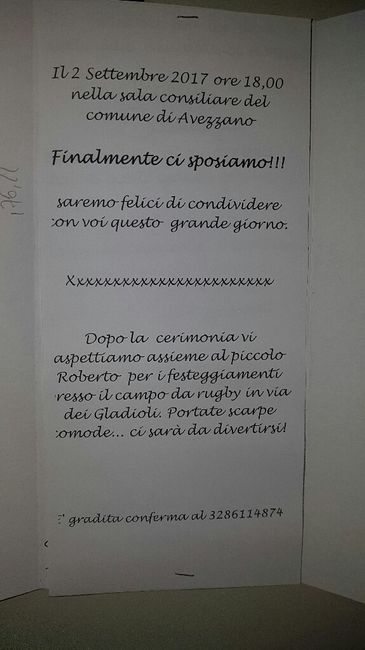 Il 2 Settembre 2017 ore 18,00
nella sala consiliare del
comune di Avezzano
Finalmente ci sposiamo!!!
saremo felici di condividere
con voi questo grande giorno.
Xxxxxxxxxxxxxxxxxxxxxxx
Dopo la cerimonia vi
aspettiamo assieme al piccolo
Roberto per i festeggiamenti
resso il campo da rugby in via
dei Gladioli. Portate scarpe
comode... ci sarà da divertirsi!
E' gradita conferma al 3286114874